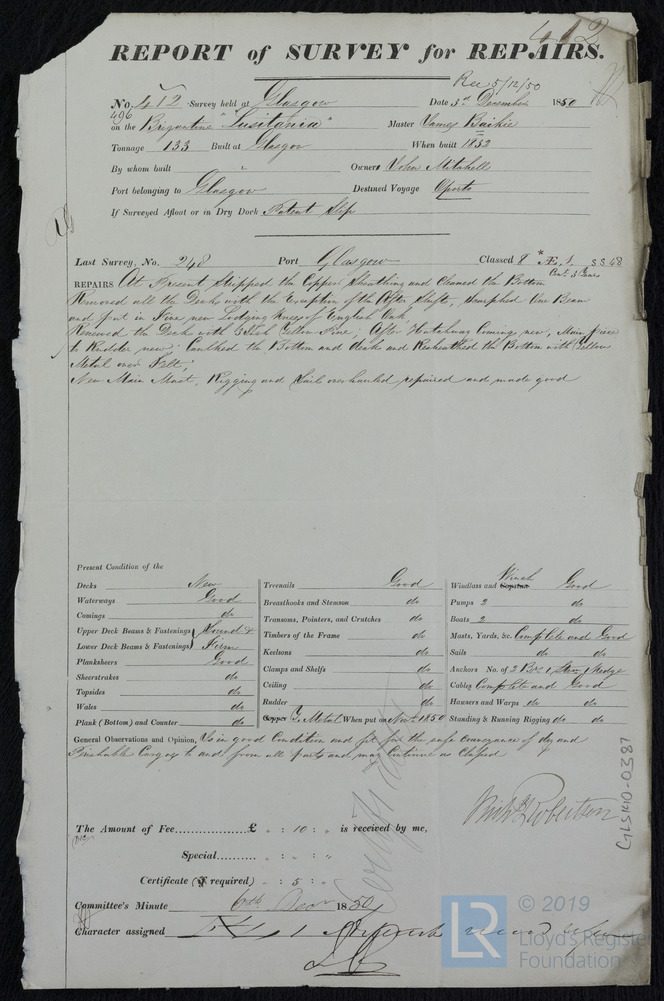 412
REPORT of SURVEY for REPAIRS.
Rec 5/12/50
No. 412 Survey held at Glasgow Date 3rd December 1850
496
on the Brigantine "Lusitania" Master James Baikie
Tonnage 133 Built at Glasgow When built 1832
By whom built " Owner John Mitchell
Port belonging to Glasgow Destined Voyage Oporto
If Surveyed Afloat or in Dry Dock Patent Slip
Last Survey, No. 248 Port Glasgow Classed 8 * Æ. 1. S S 48
Cont. 3 Years
REPAIRS At Present Stripped the Copper Sheathing and Cleaned the Bottom
Removed all the Decks with the Exception of the After Shift, one Beam
and put in Five new Lodging Knees of English Oak
Renewed the Decks with Yellow Pine; After Hatchway Comings new, Main piece
to Rudder new; Caulked the Bottom and decks and Resheathed the Bottom with Yellow
Metal over Felt;
New Main Mast, Rigging and Sails overhauled repaired and made good
Present Condition of the
Decks New
Waterways Good
Comings do
Upper Deck Beams & Fastenings Sound &
Lower Deck Beams & Fastenings Firm
Planksheers Good
Sheerstrakes do
Topsides do
Wales do
Plank (Bottom) and Counter do
Treenails Good
Breasthooks and Stemson do
Transoms, Pointers, and Crutches do
Timbers of the Frame do
Keelsons do
Clamps and Shelfs do
Ceiling do
Rudder do
Copper Y. Metal When put on Novr 1850
Winch
Windlass and Capstan Good
Pumps 2 do
Boats 2 do
Masts, Yards, &c. Complete and Good
Sails do do
Anchors No. of 2 Brs 1 Strm 1 Kedge
Cables Complete and Good
Hausers and Warps do do
Standing & Running Rigging do do
General Observations and Opinion, Is in good Condition and fit for the safe conveyance of dry and
Perishable Cargoes to and from all parts and may Continue as Classed
Robertson
GLS1410-0387
The Amount of Fee............£ " : 10 : " is received by me,
Special........ " : " : "
Certificate (if required) " : 5 : "
Committee's Minute 6th Decr 1850
Character assigned
© 2019
LR
Lloyd's Register
Foundation